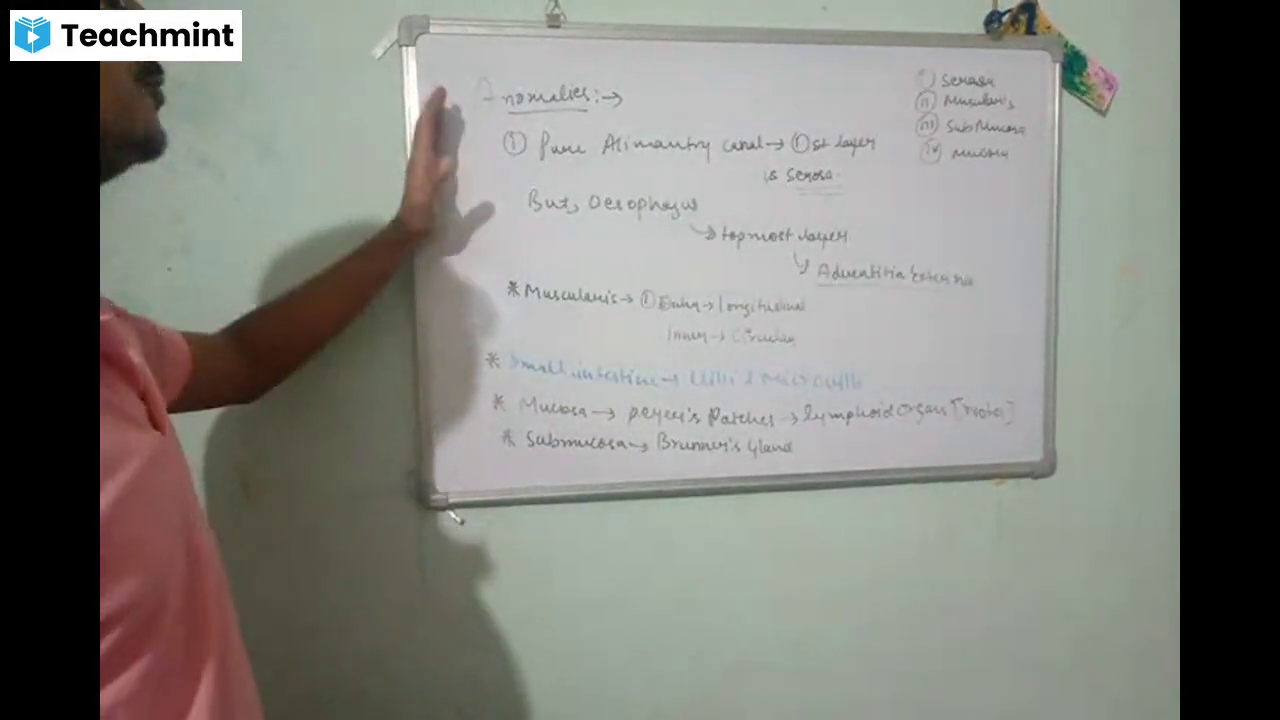 Teachmint
Anomalies:→
① Pure Alimantry canal → ①st layer
is Serosa.
But, Oesophagus
↳ topmost layer
↳ Adventitia Externa
* Muscularis → ① Outer → Longitudinal
Inner → Circular
* Small intestine → Villi & Microvilli
* Mucosa → Peyer's Patches → Lymphoid organ
* Submucosa → Brunner's Gland
ⓘ Serosa
ⓘⓘ Muscularis
ⓘⓘⓘ SubMucosa
ⓘⓥ Mucosa